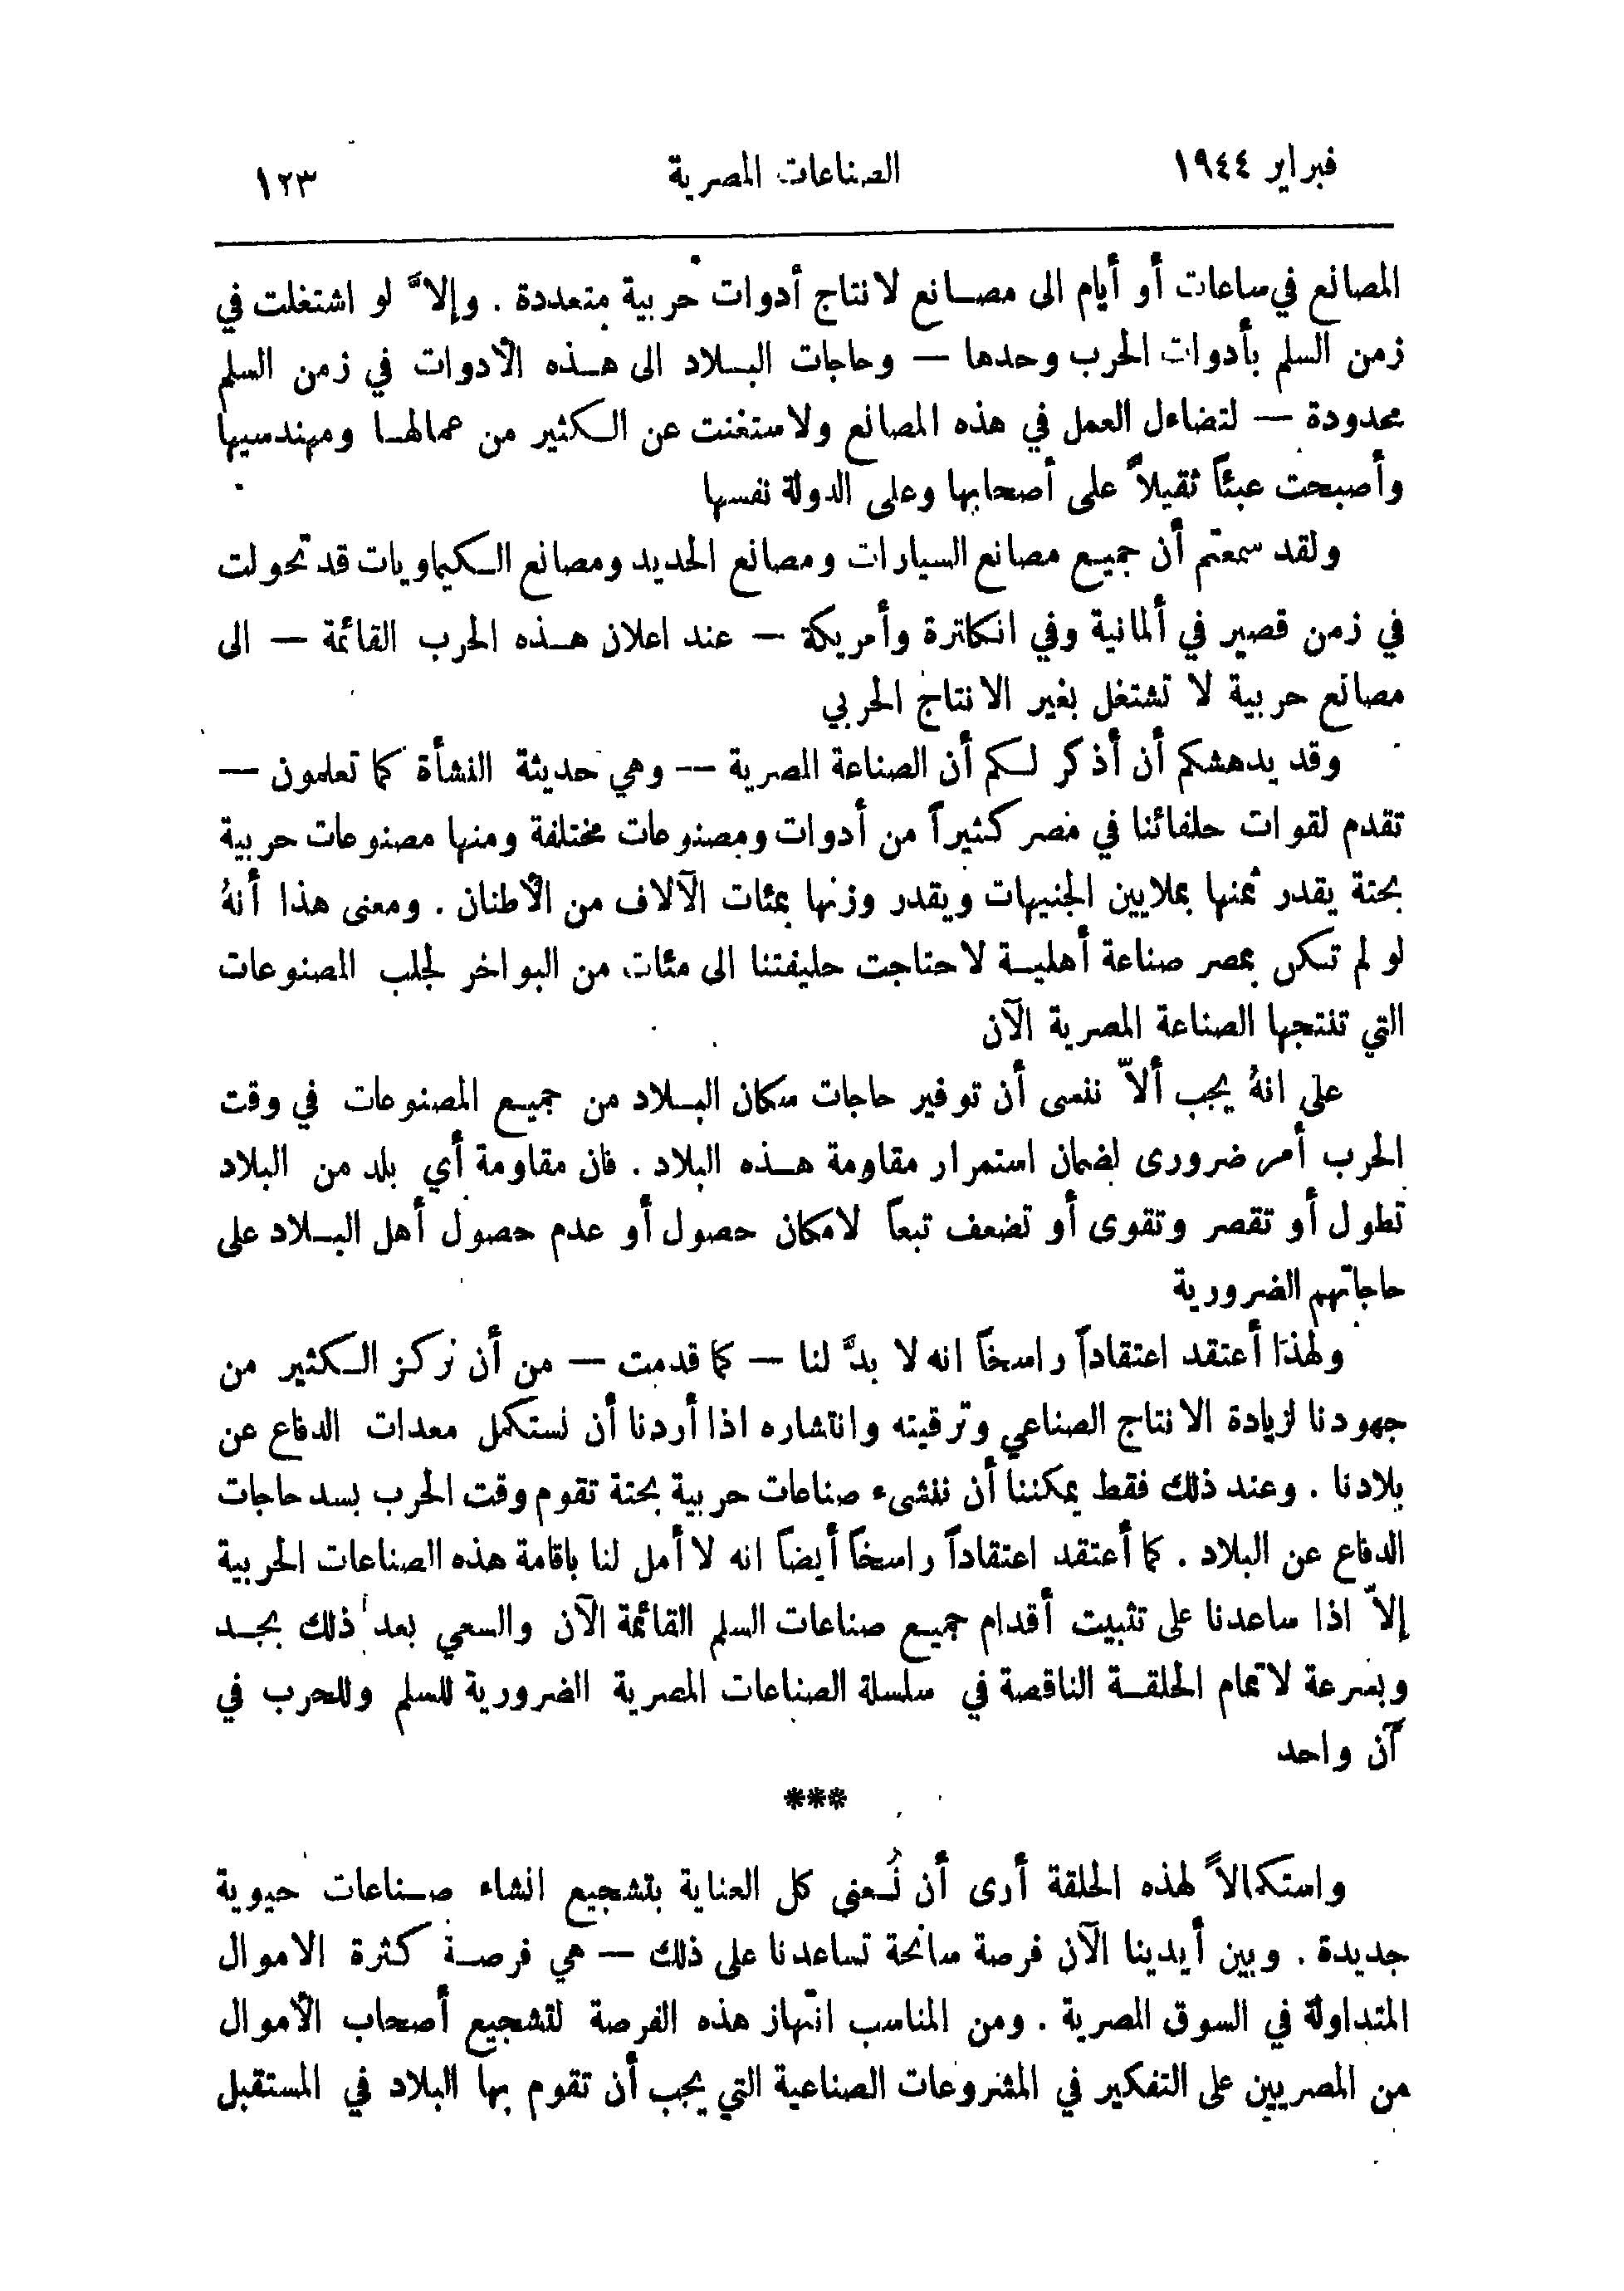 فبراير ١٩٤٤
الصناعات المصرية
١٢٣
المصانع في ساعات أو أيام الى مصانع لانتاج أدوات حربية متعددة . وإلاَّ لو اشتغلت في
زمن السلم بأدوات الحرب وحدها — وحاجات البلاد الى هذه الأدوات في زمن السلم
محدودة — لتضاءل العمل في هذه المصانع ولاستغنت عن الكثير من عمالها ومهندسيها
وأصبحت عبئاً ثقيلاً على أصحابها وعلى الدولة نفسها
ولقد سمعتم أن جميع مصانع السيارات ومصانع الحديد ومصانع الكيماويات قد تحولت
في زمن قصير في ألمانية وفي انكلترة وأمريكة — عند اعلان هذه الحرب القائمة — الى
مصانع حربية لا تشتغل بغير الانتاج الحربي
وقد يدهشكم أن أذكر لكم أن الصناعة المصرية — وهي حديثة النشأة كما تعلمون —
تقدم لقوات حلفائنا في مصر كثيراً من أدوات ومصنوعات مختلفة ومنها مصنوعات حربية
بحتة يقدر ثمنها بملايين الجنيهات ويقدر وزنها بمئات الآلاف من الأطنان . ومعنى هذا أنهُ
لو لم تكن بمصر صناعة أهلية لاحتاجت حليفتنا الى مئات من البواخر لجلب المصنوعات
التي تنتجها الصناعة المصرية الآن
على انهُ يجب ألاّ ننسى أن توفير حاجات سكان البلاد من جميع المصنوعات في وقت
الحرب أمر ضرورى لضمان استمرار مقاومة هذه البلاد . فان مقاومة أي بلد من البلاد
تطول أو تقصر وتقوى أو تضعف تبعاً لامكان حصول أو عدم حصول أهل البلاد على
حاجاتهم الضرورية
ولهذا أعتقد اعتقاداً راسخاً انه لا بدَّ لنا — كما قدمت — من أن نركز الكثير من
جهودنا لزيادة الانتاج الصناعي وترقيته وانتشاره اذا أردنا أن نستكمل معدات الدفاع عن
بلادنا . وعند ذلك فقط يمكننا أن ننشىء صناعات حربية بحتة تقوم وقت الحرب بسد حاجات
الدفاع عن البلاد . كما أعتقد اعتقاداً راسخاً أيضاً انه لا أمل لنا باقامة هذه الصناعات الحربية
إلاّ اذا ساعدنا على تثبيت أقدام جميع صناعات السلم القائمة الآن والسعي بعد ذلك بجد
وبسرعة لاتمام الحلقة الناقصة في سلسلة الصناعات المصرية الضرورية للسلم وللحرب في
آن واحد
***
واستكمالاً لهذه الحلقة أرى أن نُعنى كل العناية بتشجيع انشاء صناعات حيوية
جديدة . وبين أيدينا الآن فرصة سانحة تساعدنا على ذلك — هي فرصة كثرة الاموال
المتداولة في السوق المصرية . ومن المناسب انتهاز هذه الفرصة لتشجيع أصحاب الأموال
من المصريين على التفكير في المشروعات الصناعية التي يجب أن تقوم بها البلاد في المستقبل